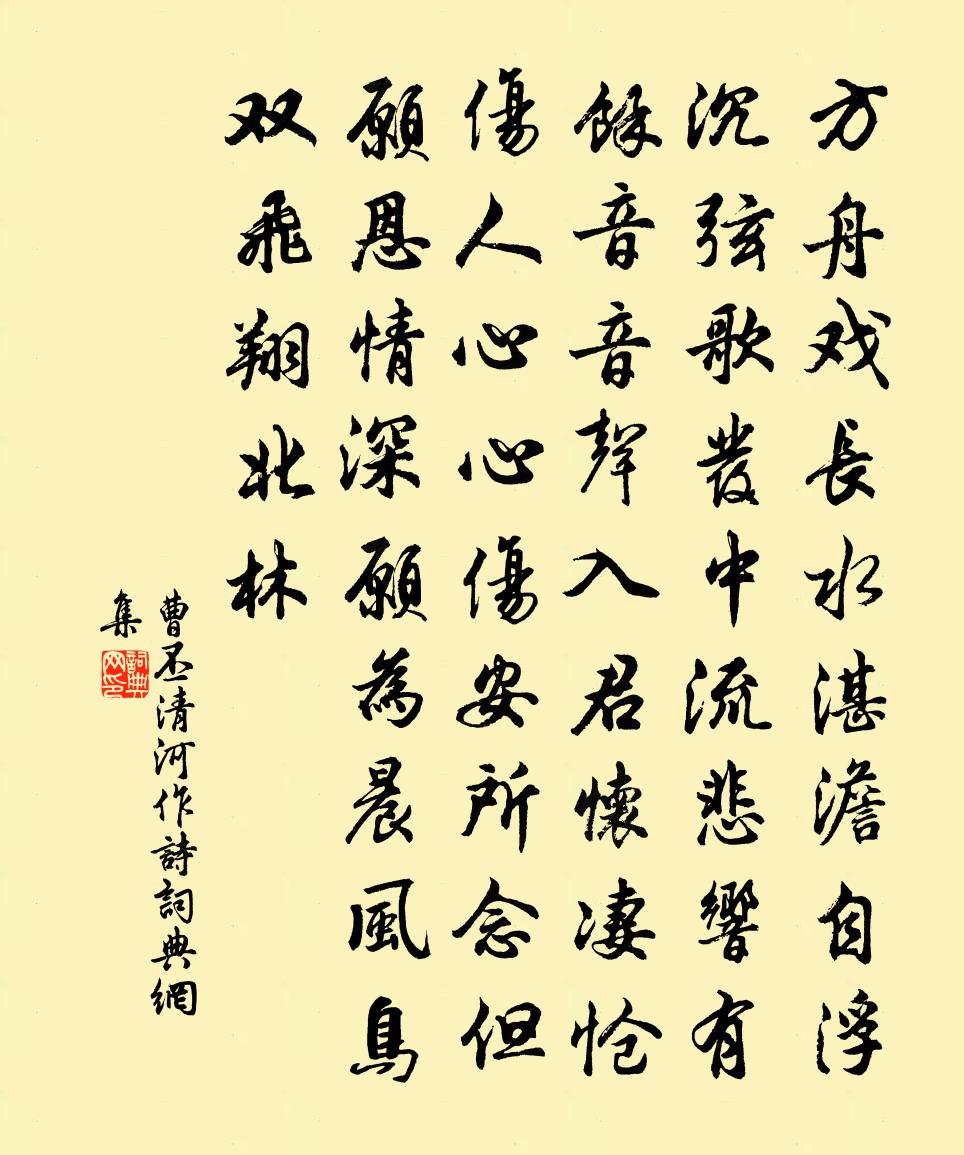 方舟戏長水湛澹自浮
沉弦歌發中流悲響有
餘音音聲入君懷凄怆
傷人心心傷安所念但
願恩情深願為晨風鳥
双飛翔北林
曹丕清河作詩詞典網
集
詞典网印